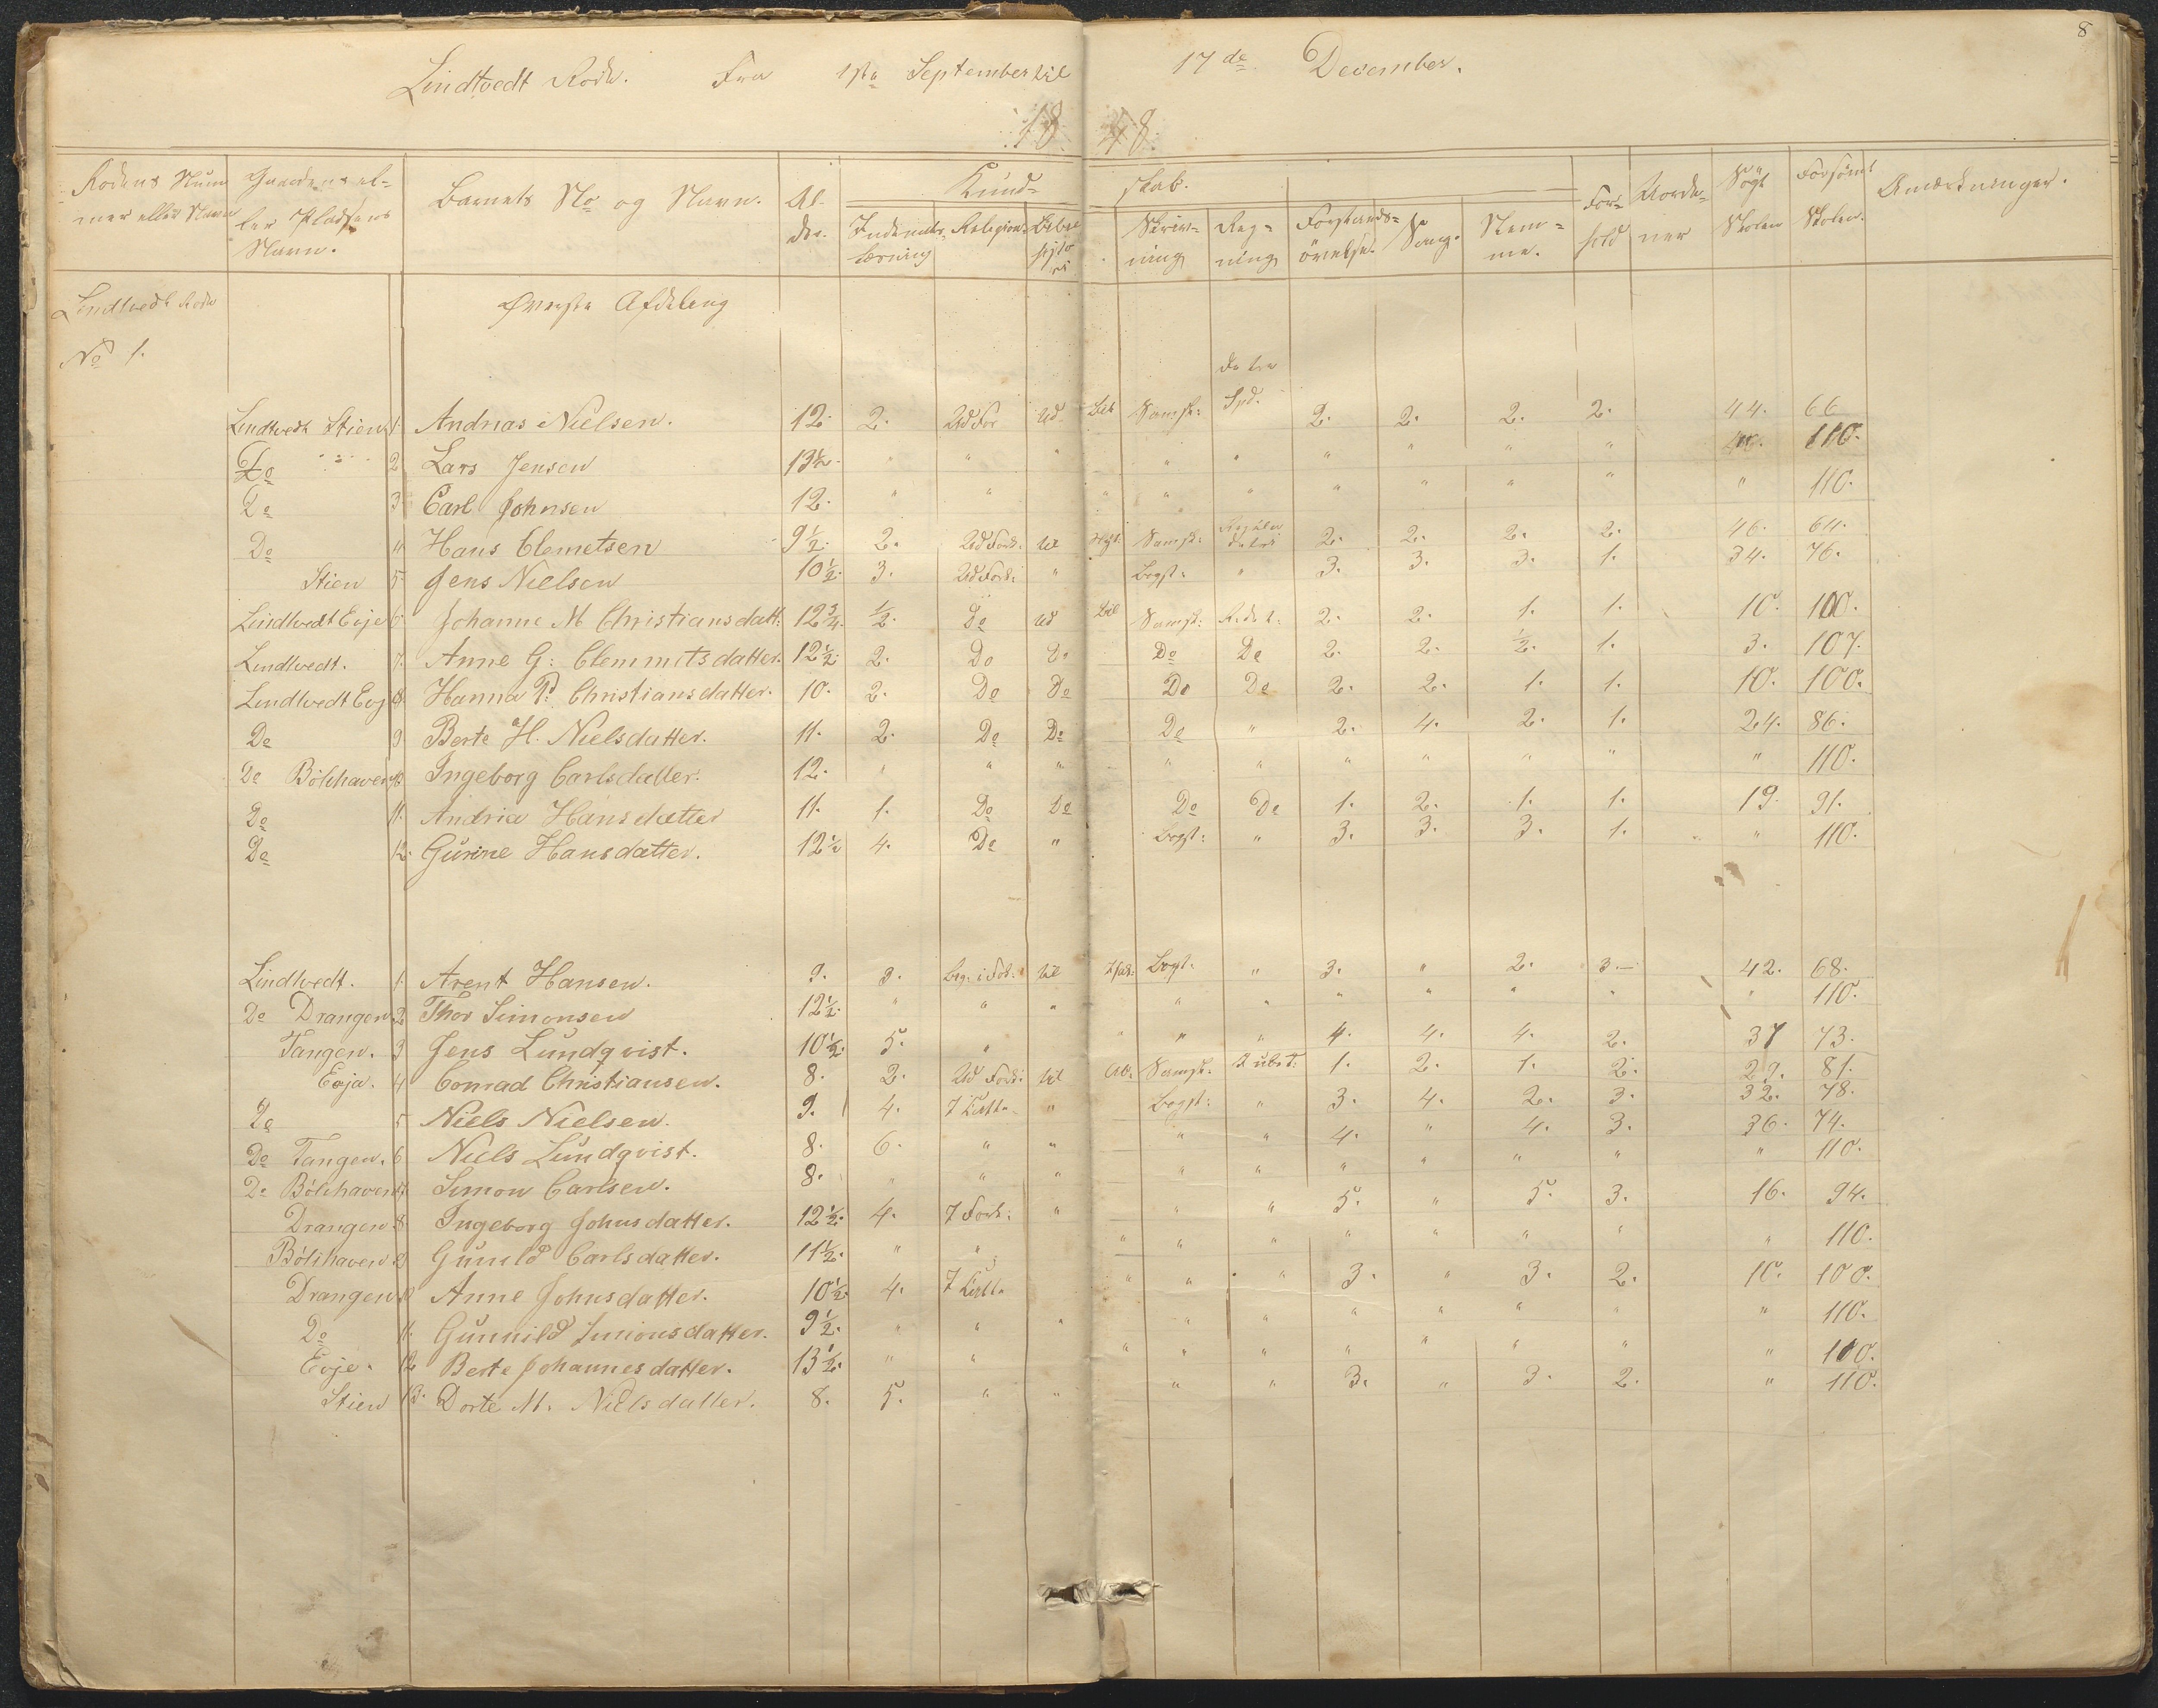 8
Lindtvedt Rode. Fra 1ste September til 17de December.
18 48.
Rodens Num- Gaardens el- Barnets No og Navn. Al- Kund- skab. For- Aarde- Søgt Forsømt Anmærkninger.
mer eller Navn ler Pladsens der. Indenads- Religion. Bibel Skriv- Reg- Forstands- Sang. Stem- hold ner Skolen Skolen.
Navn. læsning histo ri ning ning øvelse. me.
Lindtvedt Rode Øverste Afdeling
No 1.
Lindtvedt Stien 1. Andreas Nielsen. 12. 2. Ud For Ud Bib Samsk: Spd. 2. 2. 2. 2. 44. 66
Do " 2 Lars Jensen 13½. " " " " " " " " " 110.
Do 3 Carl Johnsen 12. " " " " " " " " " " 110.
Do " Hans Clemetsen 9½. 2. Ud Fork: til Samsk: 2. 2. 2. 2. 46. 64.
Stien 5 Jens Nielsen 10½. 3. Ud Fork: " Begst: " 3. 3. 3. 1. 34. 76.
Lindtvedt Evje 6 Johanne M Christiansdatt: 12¾. ½. Do Ud Bib Samsk: 2. 2. 1. 1. 10. 100.
Lindtvedt. 7. Anne G: Clemmitsdatter. 12½. 2. Do Do Do Do 2. 2. ½. 1. 3. 107.
Lindtvedt Evj 8. Hanna P. Christiansdatter. 10. 2. Do Do Do Do 2. 2. 1. 1. 10. 100.
Do 9 Berte H. Nielsdatter. 11. 2. Do Do Do " 2. 4. 2. 1. 24. 86.
Do Bölshaven 10. Ingeborg Carlsdatter. 12. " " " " " " " " " " 110.
Do 11. Andria Hansdatter 11. 1. Do Do Do Do 1. 2. 1. 1. 19. 91.
Do 12. Gurine Hansdatter. 12½ 4. Do " Begst: " 3. 3. 3. 1. " 110.
Lindtvedt. 1. Arent Hansen. 9. 3. Beg. i Fork: til Begt: " 3. " 2. 3 42. 68.
Do Drangen 2 Thor Simonsen 12½. " " " " " " " " " " 110.
Tangen. 3 Jens Lundqvist. 10½. 5. " " " " 4. 4. 4. 2. 37 73.
Evja. 4 Conrad Christiansen. 8. 2. Ud Fork: til Samsk: 1. 2. 1. 2. 29. 81.
Do 5 Niels Nielsen. 9. 4. I Katt. " Begst: " 3. 4. 2. 3. 32. 78.
Do Tangen. 6 Niels Lundqvist. 8. 6. " " " " 4. " 4. 3. 36. 74.
Do Bölshaven 7. Simon Carlsen. 8. " " " " " " " " " " 110.
Drangen 8 Ingeborg Johnsdatter. 12½. 4. I Fork: " " " 5. " 5. 3. 16. 94.
Bölshaven 9 Gunild Carlsdatter. 11½. " " " " " " " " " " 110.
Drangen 10 Anne Johnsdatter. 10½. 4. I Katt. " " " 3. " 3. 2. 10. 100.
Do 11. Gunnild Simonsdatter. 9½. " " " " " " " " " " 110.
Evje. 12 Berte Johannesdatter. 13½. " " " " " " " " " " 110.
Stien 13. Dorte M. Nielsdatter. 8. 5. " " " " 3. " 3. 2. " 110.